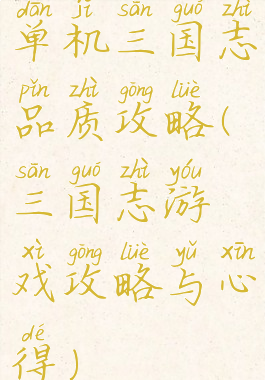 dān jī sān guó zhì
单机三国志
pǐn zhì gōng lüè
品质攻略(
sān guó zhì yóu
三国志游
xì gōng lüè yǔ xīn
戏攻略与心
dé
得)